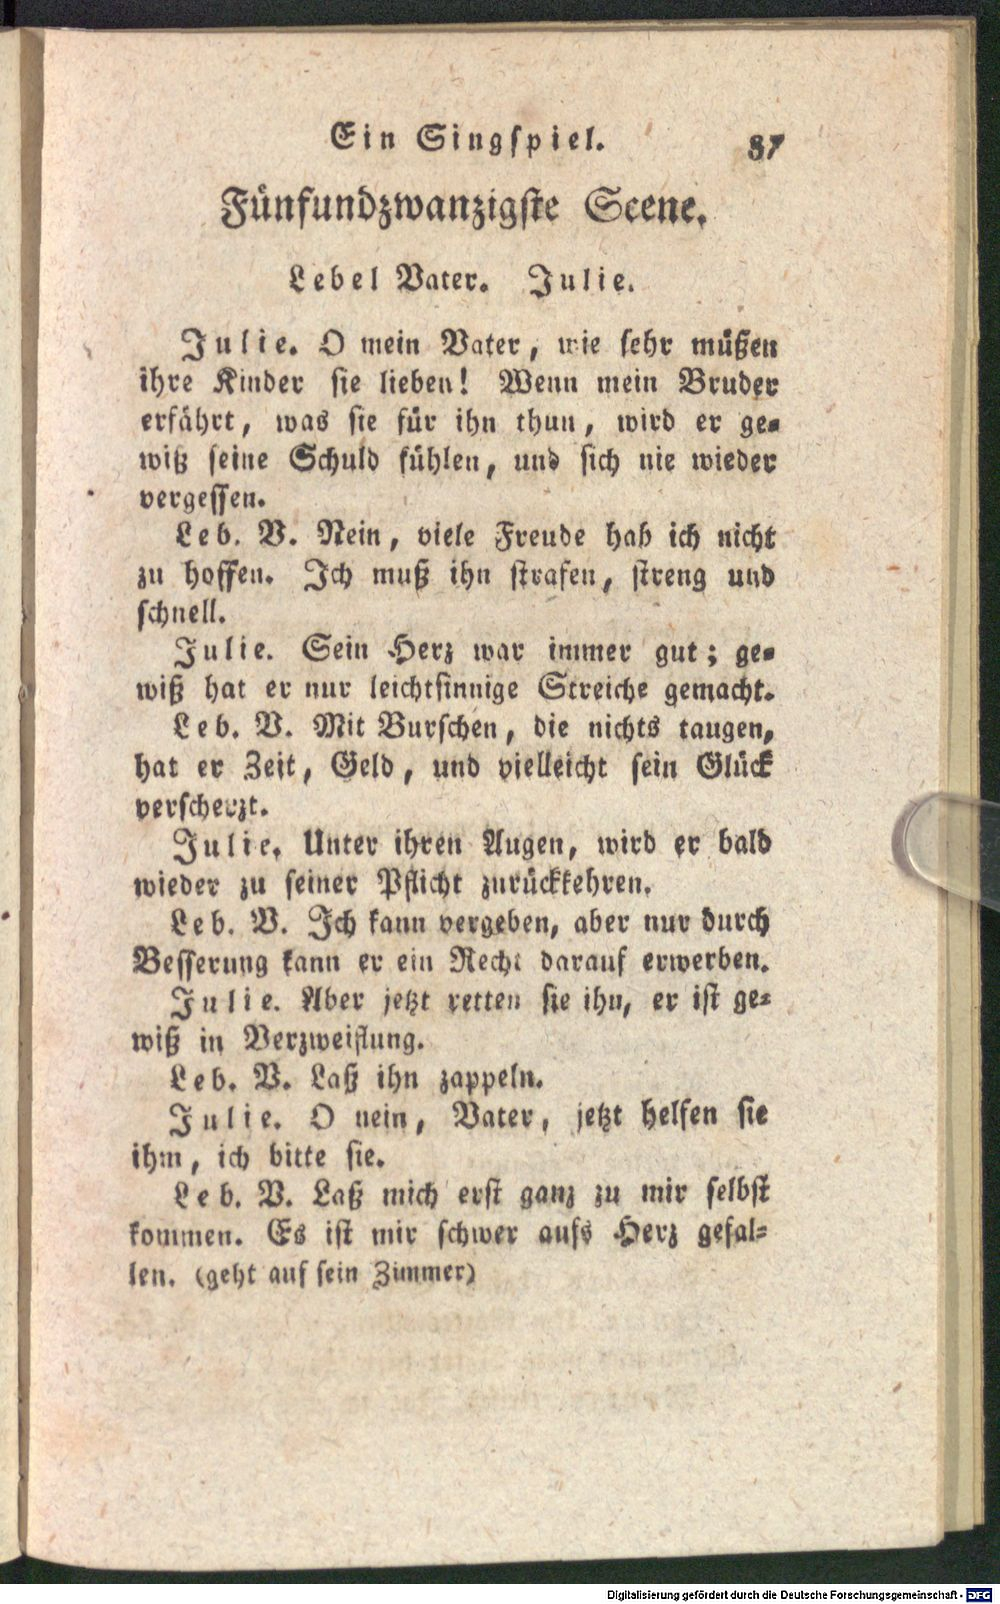 Ein Singspiel. 87
Fünfundzwanzigste Scene.
Lebel Vater. Julie.
Julie. O mein Vater, wie sehr müßen
ihre Kinder sie lieben! Wenn mein Bruder
erfährt, was sie für ihn thun, wird er ge-
wiß seine Schuld fühlen, und sich nie wieder
vergessen.
Leb. V. Nein, viele Freude hab ich nicht
zu hoffen. Ich muß ihn strafen, streng und
schnell.
Julie. Sein Herz war immer gut; ge-
wiß hat er nur leichtsinnige Streiche gemacht.
Leb. V. Mit Burschen, die nichts taugen,
hat er Zeit, Geld, und vielleicht sein Glück
verscherzt.
Julie. Unter ihren Augen, wird er bald
wieder zu seiner Pflicht zurückkehren.
Leb. V. Ich kann vergeben, aber nur durch
Besserung kann er ein Recht darauf erwerben.
Julie. Aber jetzt retten sie ihn, er ist ge-
wiß in Verzweiflung.
Leb. V. Laß ihn zappeln.
Julie. O nein, Vater, jetzt helfen sie
ihm, ich bitte sie.
Leb. V. Laß mich erst ganz zu mir selbst
kommen. Es ist mir schwer aufs Herz gefal-
len. (geht auf sein Zimmer)
Digitalisierung gefördert durch die Deutsche Forschungsgemeinschaft - DFG